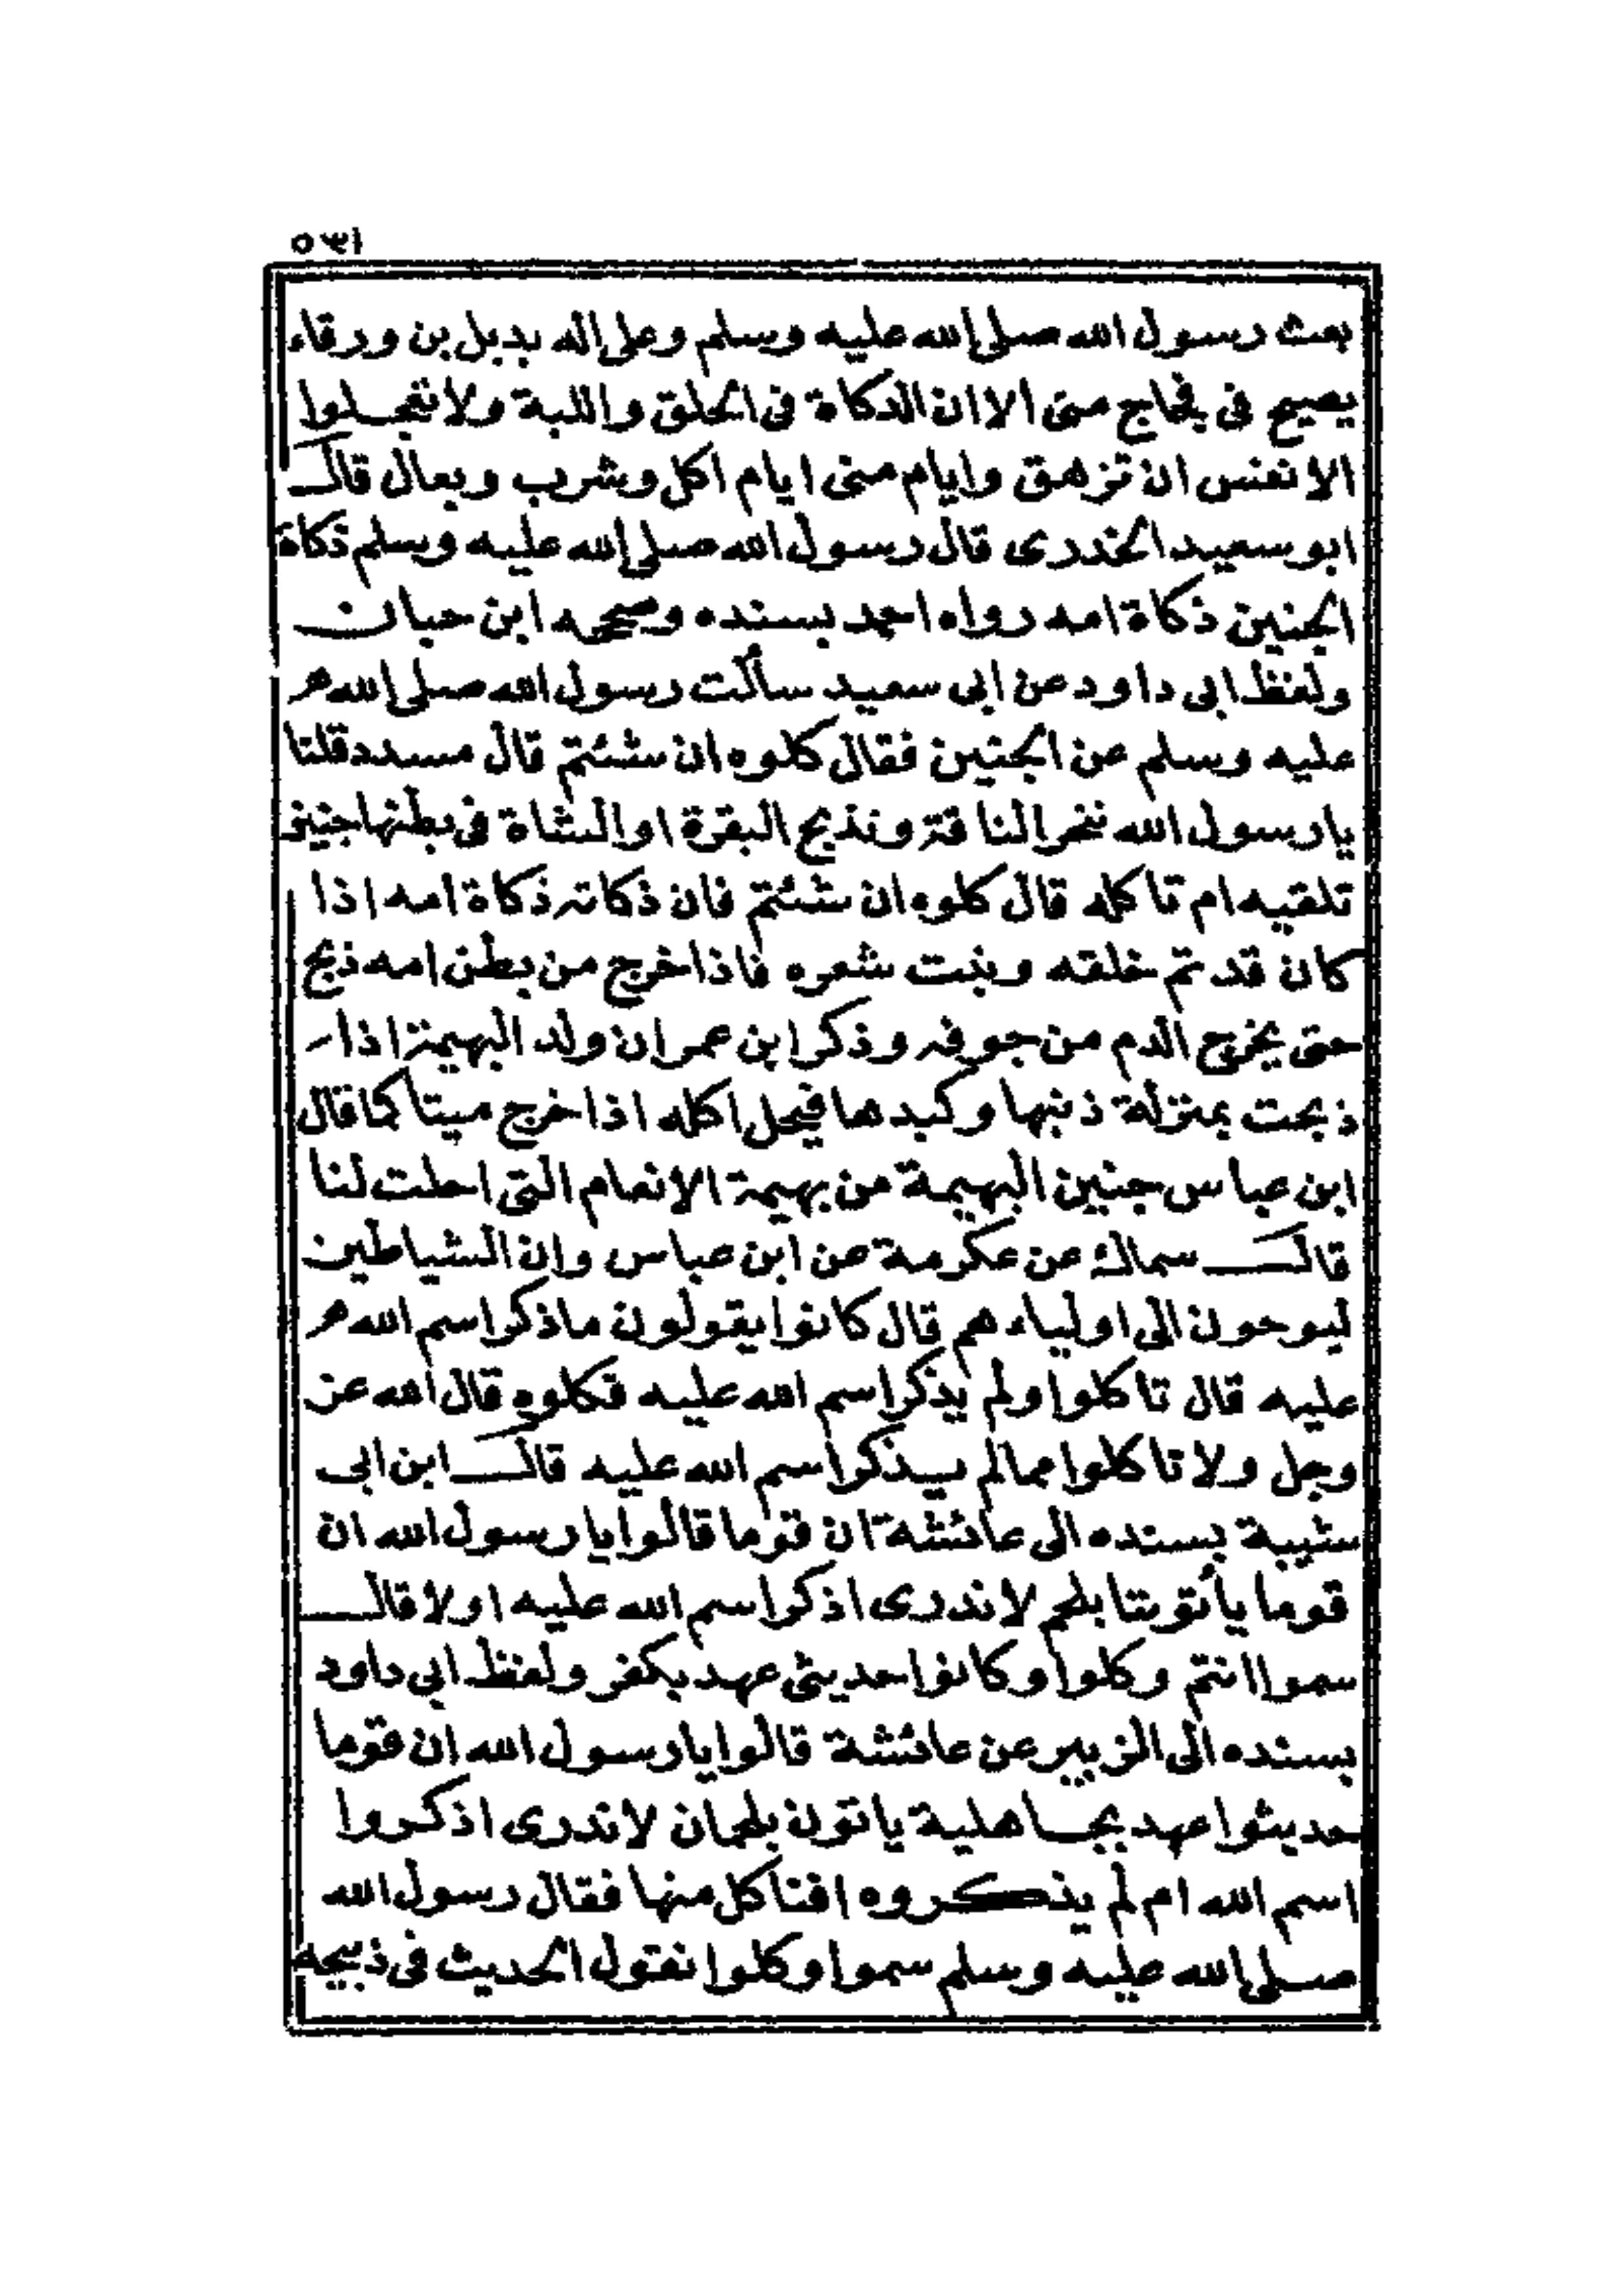 ١٣٥
بعث رسول الله صلى الله عليه وسلم وعلى اله بديل بن ورقاء
يصيح فى فجاج منى الا ان الذكاة فى الحلق واللبة ولا تعجلوا
الانفس ان تزهق وايام منى ايام اكل وشرب وبعال قال
ابو سعيد الخدرى قال رسول الله صلى الله عليه وسلم ذكاة
الجنين ذكاة امه رواه احمد بسنده وصححه ابن حبان
ولفظ ابى داود عن ابى سعيد سألت رسول الله صلى الله
عليه وسلم عن الجنين فقال كلوه ان شئتم قال مسدد قلنا
يارسول الله ننحر الناقة ونذبح البقرة او الشاة فى بطنها جنين
تلقيه ام تاكله قال كلوه ان شئتم فان ذكاته ذكاة امه اذا
كان قد تم خلقه وبنت شعره فاذا خرج من بطن امه ذبح
حتى يخرج الدم من جوفه وذكر ابن عمر ان ولد البهيمة اذا
ذبحت بمنزلة ذنبها وكبدها فيحل اكله اذا خرج ميتا كما قال
ابن عباس جنين البهيمة من بهيمة الانعام التى احلت لنا
قال سماك عن عكرمة عن ابن عباس وان الشياطين
ليوحون الى اولياءهم قال كانوا يقولون ما ذكر اسم الله
عليه قال تاكلوا ولم يذكر اسم الله عليه فكلوه قال الله عز
وجل ولا تاكلوا مما لم يذكر اسم الله عليه قال ابن ابى
شيبة بسنده الى عائشة ان قوما قالوا يا رسول الله ان
قوما يأتوننا بلحم لا ندرى اذكر اسم الله عليه اولا قال
سموا انتم وكلوا وكانوا حديثى عهد بكفر ولفظ ابى داود
بسنده الى الزبير عن عائشة قالوا يا رسول الله ان قوما
حديثوا عهد بجاهلية ياتون بلحمان لا ندرى اذكروا
اسم الله ام لم يذكروه افناكل منها فقال رسول الله
صلى الله عليه وسلم سموا وكلوا نقول الحديث فى ذبيحه